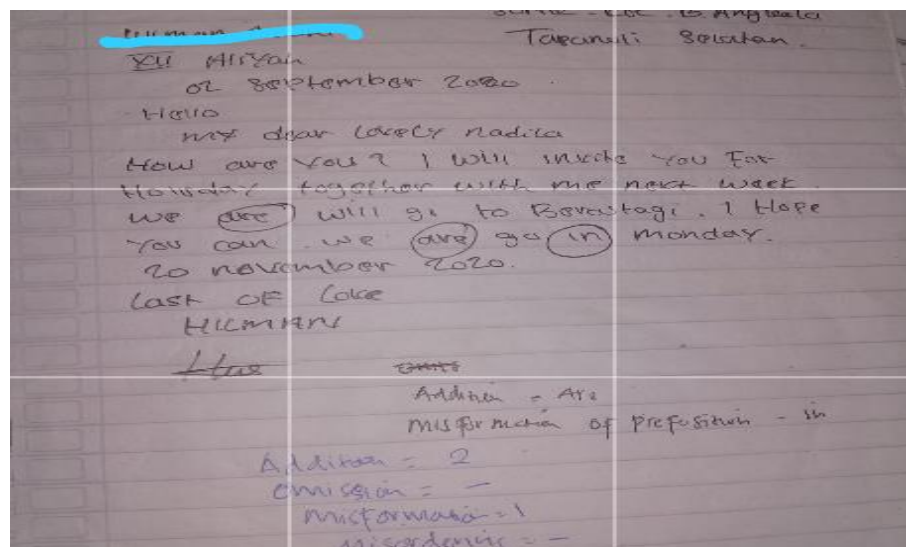 B. Angkola
Tapanuli Selatan.
XII Aliyah
02 September 2020.
Hello
my dear lovely nadila
How are you? I will invite you For
Holiday together with me next week.
we are will go to Berastagi. I Hope
You can. we are go in monday.
20 november 2020.
Last OF Love
HILMANI
Addition = Are
misformation of preposition - in
Addition = 2
omission = -
misformasi = 1
= -